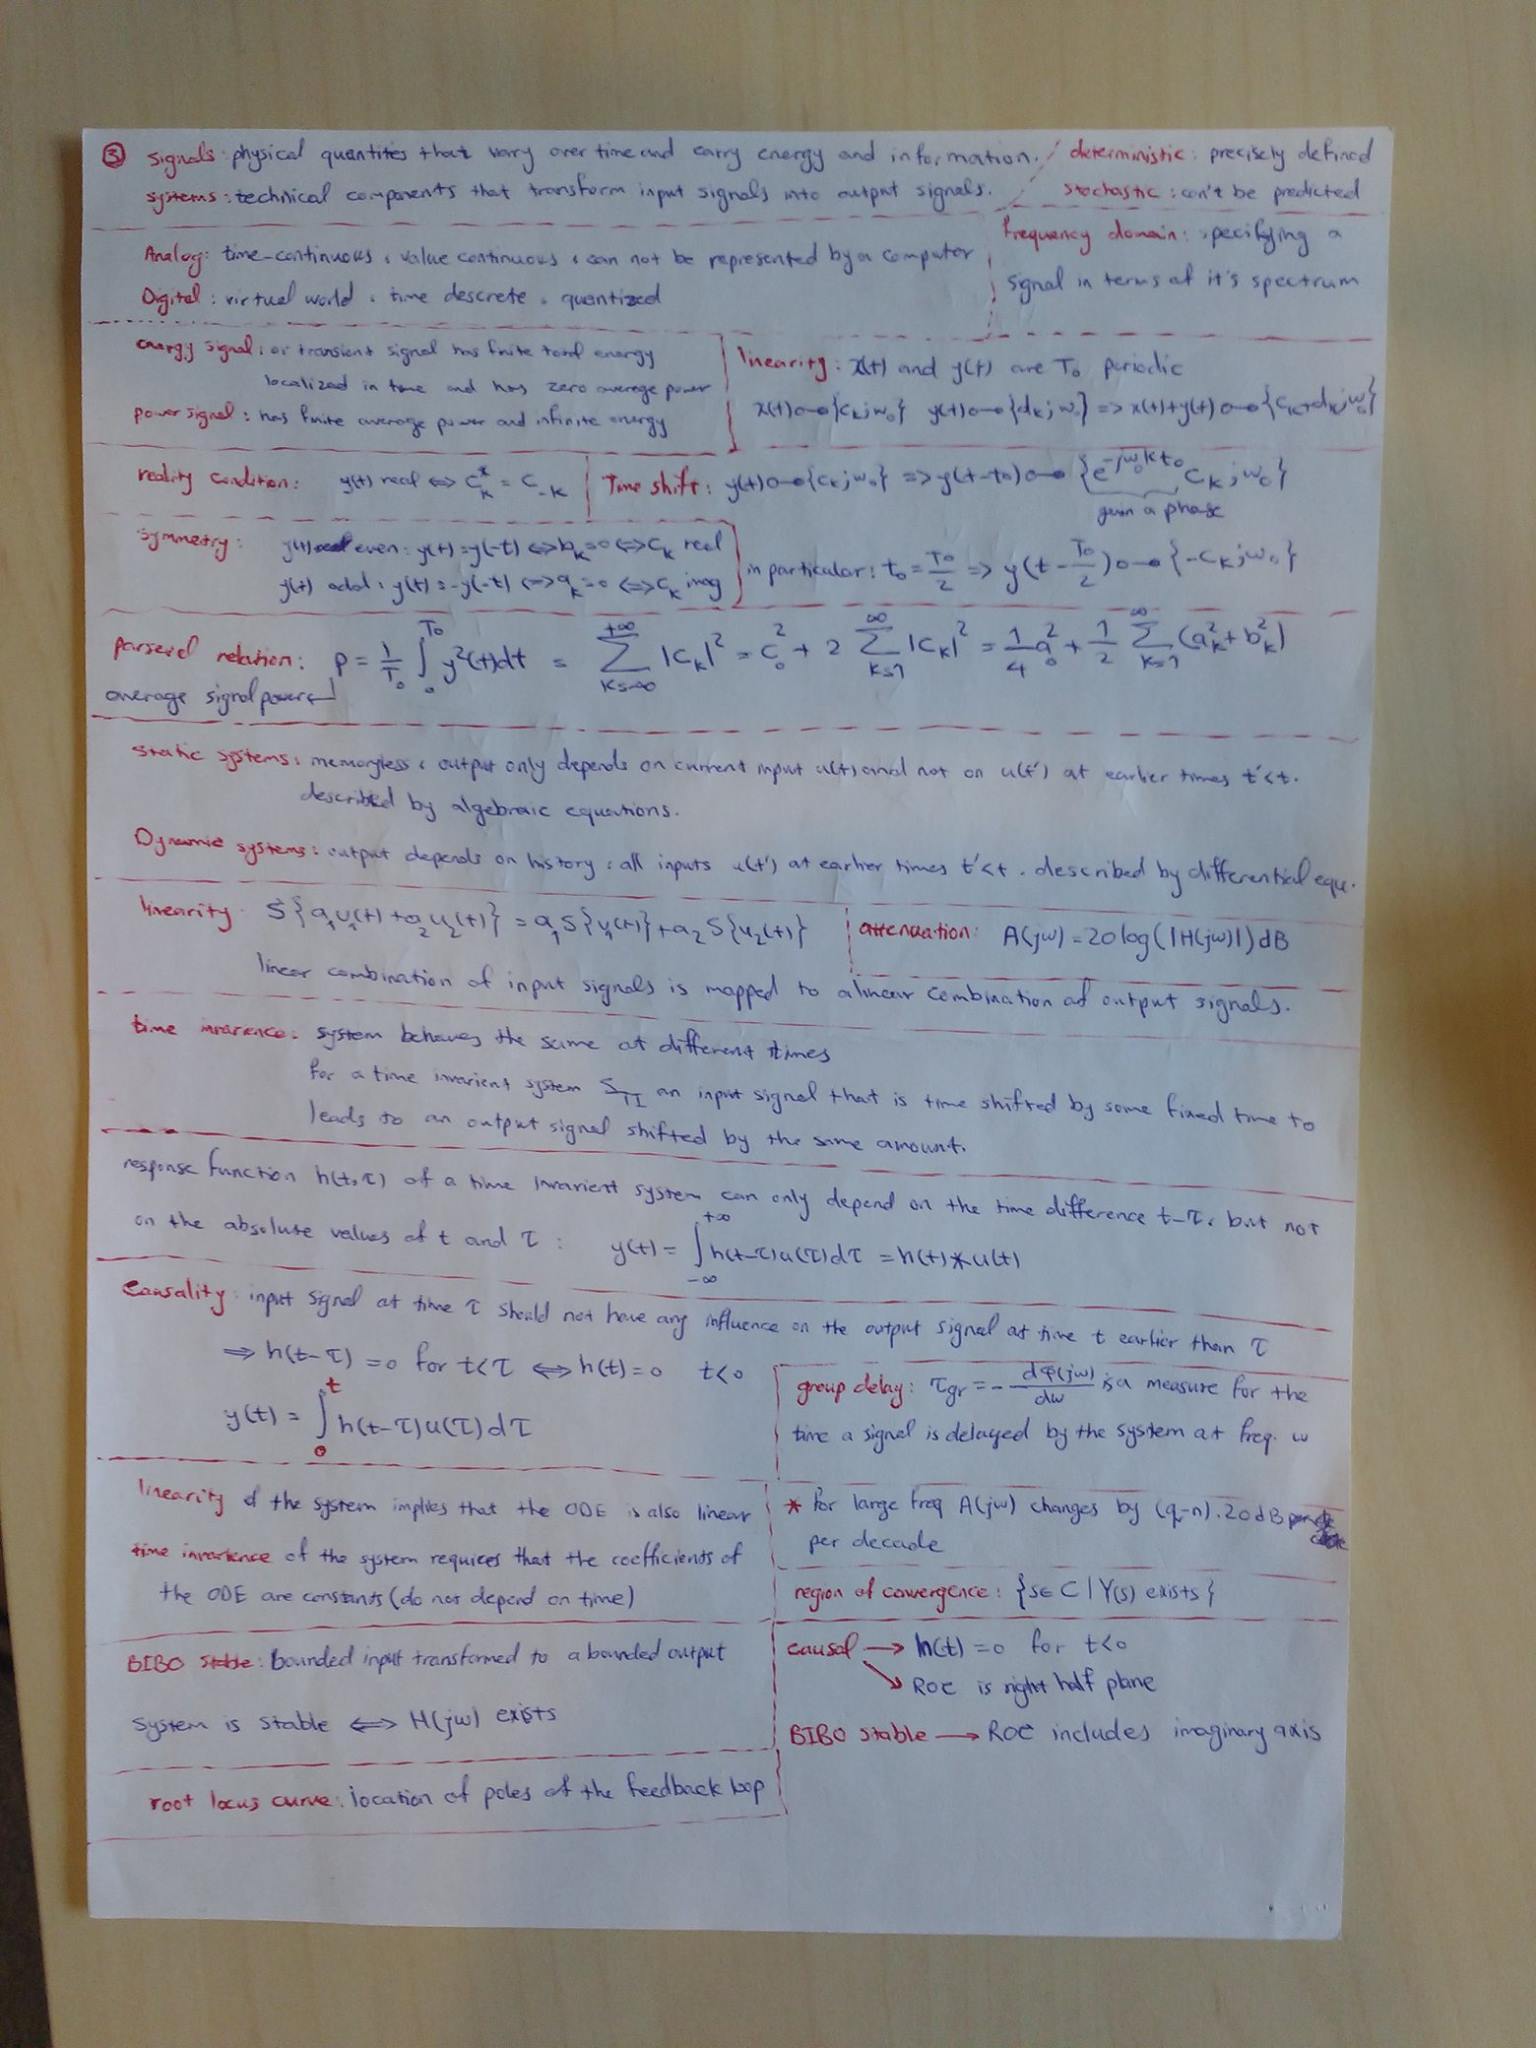 ③ signals: physical quantites that vary over time and carry energy and information. / deterministic: precisely defined
systems: technical components that transform input signals into output signals. stochastic: can't be predicted
Analog: time-continuous, value continuous, can not be represented by a computer
Digital: virtual world, time descrete, quantized
frequency domain: specifying a
signal in terms of it's spectrum
energy signal: or transient signal has finite total energy
localized in time and has zero average power
power signal: has finite average power and infinite energy
linearity: x(t) and y(t) are T₀ periodic
x(t)o–•{cₖ;w₀} y(t)o–•{dₖ;w₀} => x(t)+y(t)o–•{cₖ+dₖ;w₀}
reality condition: y(t) real <=> cₖ* = c₋ₖ
Time shift: y(t)o–•{cₖ;w₀} => y(t-t₀)o–•{e^(-jw₀kt₀) cₖ;w₀}
gain a phase
symmetry: y(t) even: y(t)=y(-t) <=> bₖ=0 <=> cₖ real
y(t) odd: y(t)=-y(-t) <=> aₖ=0 <=> cₖ imag
in particular: t₀ = T₀/2 => y(t - T₀/2)o–•{-cₖ;w₀}
relation: P = 1/T₀ ∫₀^T₀ y²(t)dt = Σ_{k=-∞}^{+∞} |cₖ|² = c₀² + 2 Σ_{k=1}^{∞} |cₖ|² = 1/4 a₀² + 1/2 Σ_{k=1}^{∞} (aₖ²+bₖ²)
average signal power
static systems: memoryless, output only depends on current input u(t) and not on u(t') at earlier times t'<t.
described by algebraic equations.
Dynamic systems: output depends on history, all inputs u(t') at earlier times t'<t. described by differential equ.
linearity: S{a₁u₁(t)+a₂u₂(t)} = a₁S{u₁(t)}+a₂S{u₂(t)}
attenuation: A(jw)=20log(|H(jw)|)dB
linear combination of input signals is mapped to a linear combination of output signals.
time invarence: system behaves the same at different times
for a time invarient system S_TI an input signal that is time shifted by some fixed time to
leads to an output signal shifted by the same amount.
response function h(t,τ) of a time invarient system can only depend on the time difference t-τ, but not
on the absolute values of t and τ: y(t) = ∫_{-∞}^{+∞} h(t-τ)u(τ)dτ = h(t)*u(t)
causality: input signal at time τ should not have any influence on the output signal at time t earlier than τ
=> h(t-τ)=0 for t<τ <=> h(t)=0 t<0
y(t) = ∫₀^t h(t-τ)u(τ)dτ
group delay: τgr = - dφ(jw)/dw is a measure for the
time a signal is delayed by the system at freq. w
linearity of the system implies that the ODE is also linear
time invarience of the system requires that the coefficients of
the ODE are constants (do not depend on time)
* For large freq A(jw) changes by (q-n).20dB
per decade
region of convergence: {s∈C | Y(s) exists}
BIBO stable: bounded input transformed to a bounded output
system is stable <=> H(jw) exists
causal → h(t)=0 for t<0
↘ ROC is right half plane
BIBO stable → ROC includes imaginary axis
root locus curve: location of poles of the feedback loop